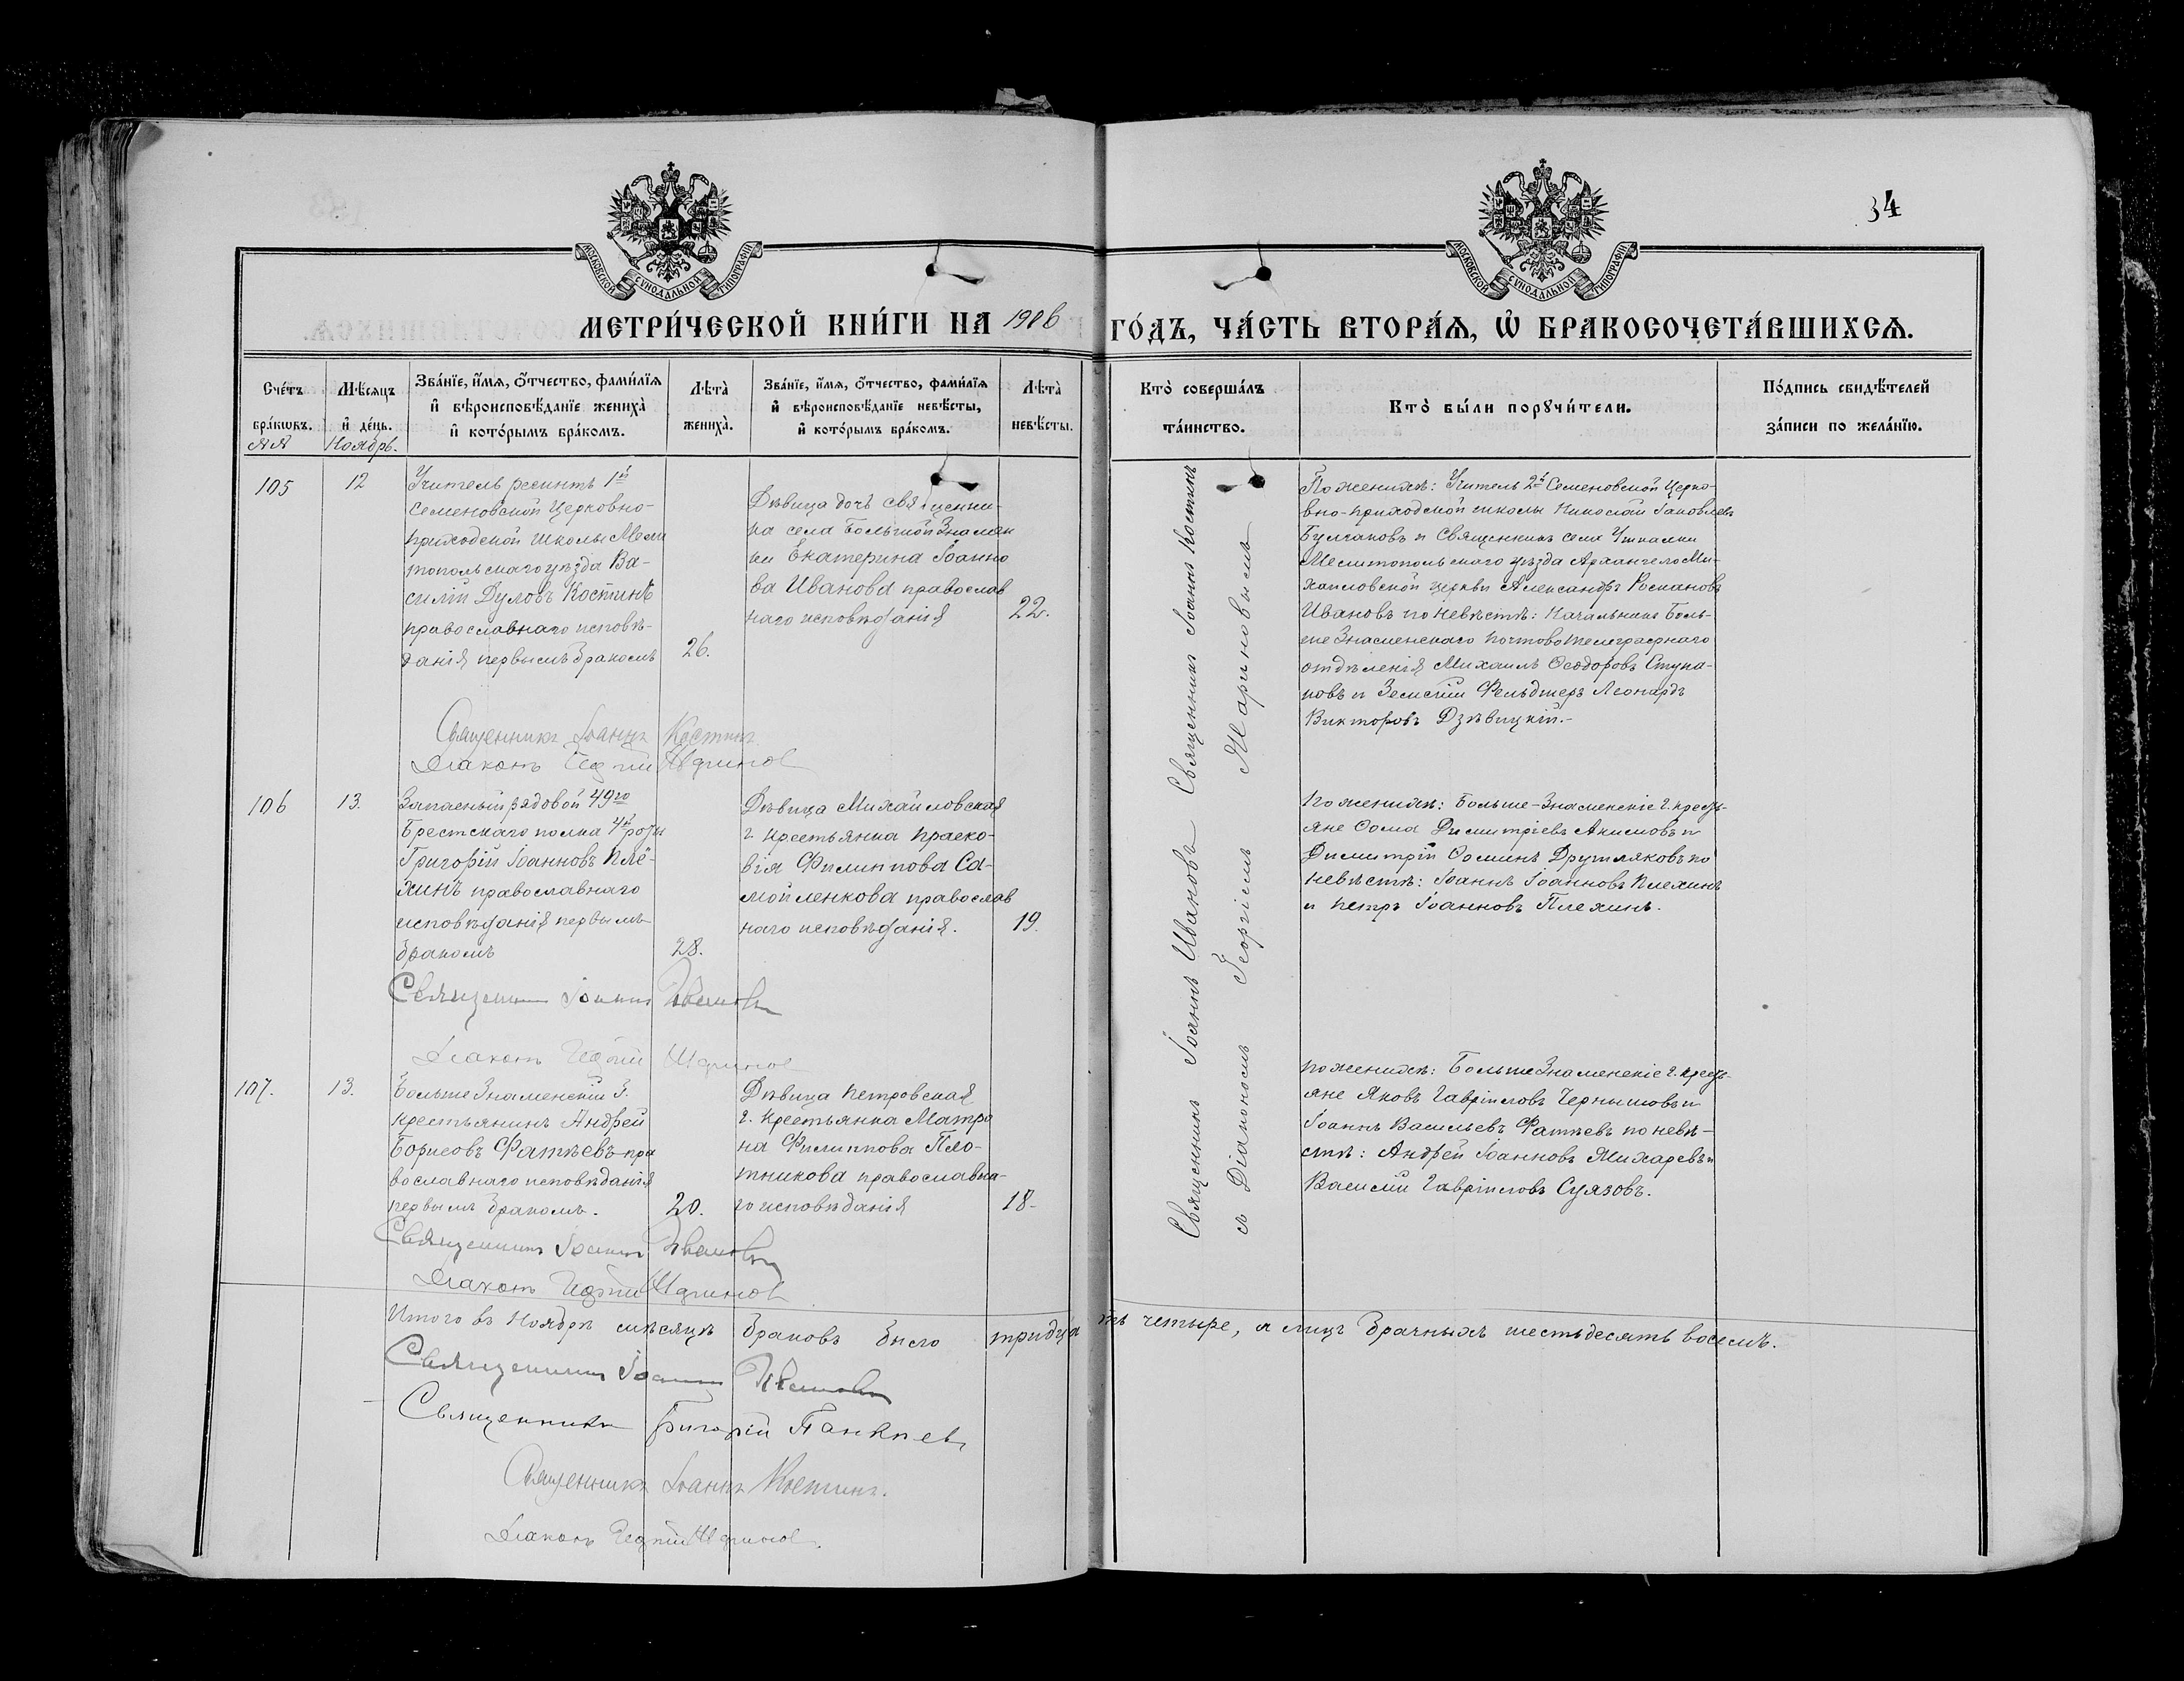 34
МОСКОВСКОЙ СѴНОДАЛЬНОЙ ТИПОГРАФІИ
МОСКОВСКОЙ СѴНОДАЛЬНОЙ ТИПОГРАФІИ
МЕТРИ́ЧЕСКОЙ КНИ́ГИ НА 1906 ГО́ДЪ, ЧА́СТЬ ВТОРА́Я, Ѡ БРАКОСОЧЕТА́ВШИХСЯ.
Сче́тъ бра́кѡвъ.
Мѣ́сяцъ и҆ де́нь.
Зва́нїе, и҆́мя, ѻ҆́тчество, фамі́лїя и҆ вѣроисповѣ́данїе жениха̀ и҆ кото́рымъ бра́комъ.
Лѣта̀ жениха̀.
Зва́нїе, и҆́мя, ѻ҆́тчество, фамі́лїя и҆ вѣроисповѣ́данїе невѣ́сты, и҆ кото́рымъ бра́комъ.
Лѣта̀ невѣ́сты.
Кто̀ соверша́лъ та́инство.
Кто̀ бы́ли порꙋчи́тели.
По́дпись свидѣ́телей за́писи по жела́нїю.
Ноябрь.
105
12
Учитель
Семеновской Церковно-
приходской школы Мели
топольскаго уѣзда Ва-
силій Костинъ
православнаго исповѣ-
данія первымъ бракомъ
26.
Дѣвица дочь священни-
ка села Большой Знамен
ки Екатерина Іоанно
ва Иванова православ
наго исповѣданія
22.
По женихѣ: Учитель 2й Семеновской Церко-
вно-приходской школы Николай Іаковлевъ
Булгаковъ и Священникъ села
Мелитопольскаго уѣзда Архангело Ми-
хаиловской церкви Александръ Романовъ
Ивановъ по невѣстѣ: Начальникъ Боль-
ше Знаменскаго Почтово телеграфнаго
отдѣленія Михаилъ Ѳеодоровъ Ступа-
ковъ и Земскій Фельдшеръ Леонардъ
Викторовъ Дзѣвицкій.-
Священникъ Іоаннъ Костинъ
Діаконъ Георгій Мариновъ
106
13.
Запасный рядовой 49го
Брестскаго полка 4й роты
Григорій Іоанновъ Плё-
хинъ православнаго
исповѣданія первымъ
бракомъ
28.
Дѣвица Михайловская
г. крестьянка Праско-
вія Филиппова Са-
мойленкова православ
наго исповѣданія.
19.
По женихѣ: Больше-Знаменскіе г. кресть-
яне Ѳома Димитріевъ Акимовъ и
Димитрій Ѳоминъ Друшляковъ по
невѣстѣ: Іоаннъ Іоанновъ Плехинъ
и Петръ Іоанновъ Плехинъ.
Священникъ Іоаннъ Ивановъ
Діаконъ Георгій Мариновъ
107.
13.
Больше Знаменскій г.
крестьянинъ Андрей
Борисовъ Фатѣевъ пра
вославнаго исповѣданія
первымъ бракомъ.
20.
Дѣвица Петровская
г. крестьянка Матро
на Филиппова Пло-
тникова православна-
го исповѣданія
18-
по женихѣ: Больше Знаменскіе г. кресть-
яне Яковъ Гавріиловъ Чернышовъ и
Іоаннъ Васильевъ Фатѣевъ по невѣ-
стѣ: Андрей Іоанновъ Михаревъ и
Василій Гавріиловъ Суязовъ.
Священникъ Іоаннъ Ивановъ
Діаконъ Георгій Мариновъ
Священникъ Іоаннъ Ивановъ Священникъ Іоаннъ Костинъ
съ Діакономъ Георгіемъ Мариновымъ
Итого въ Ноябрѣ мѣсяцѣ браковъ было тридцать четыре, а лицъ брачныхъ шестьдесятъ восемь.
Священникъ Іоаннъ Ивановъ
Священникъ Григорій
Священникъ Іоаннъ Костинъ.
Діаконъ Георгій Мариновъ.